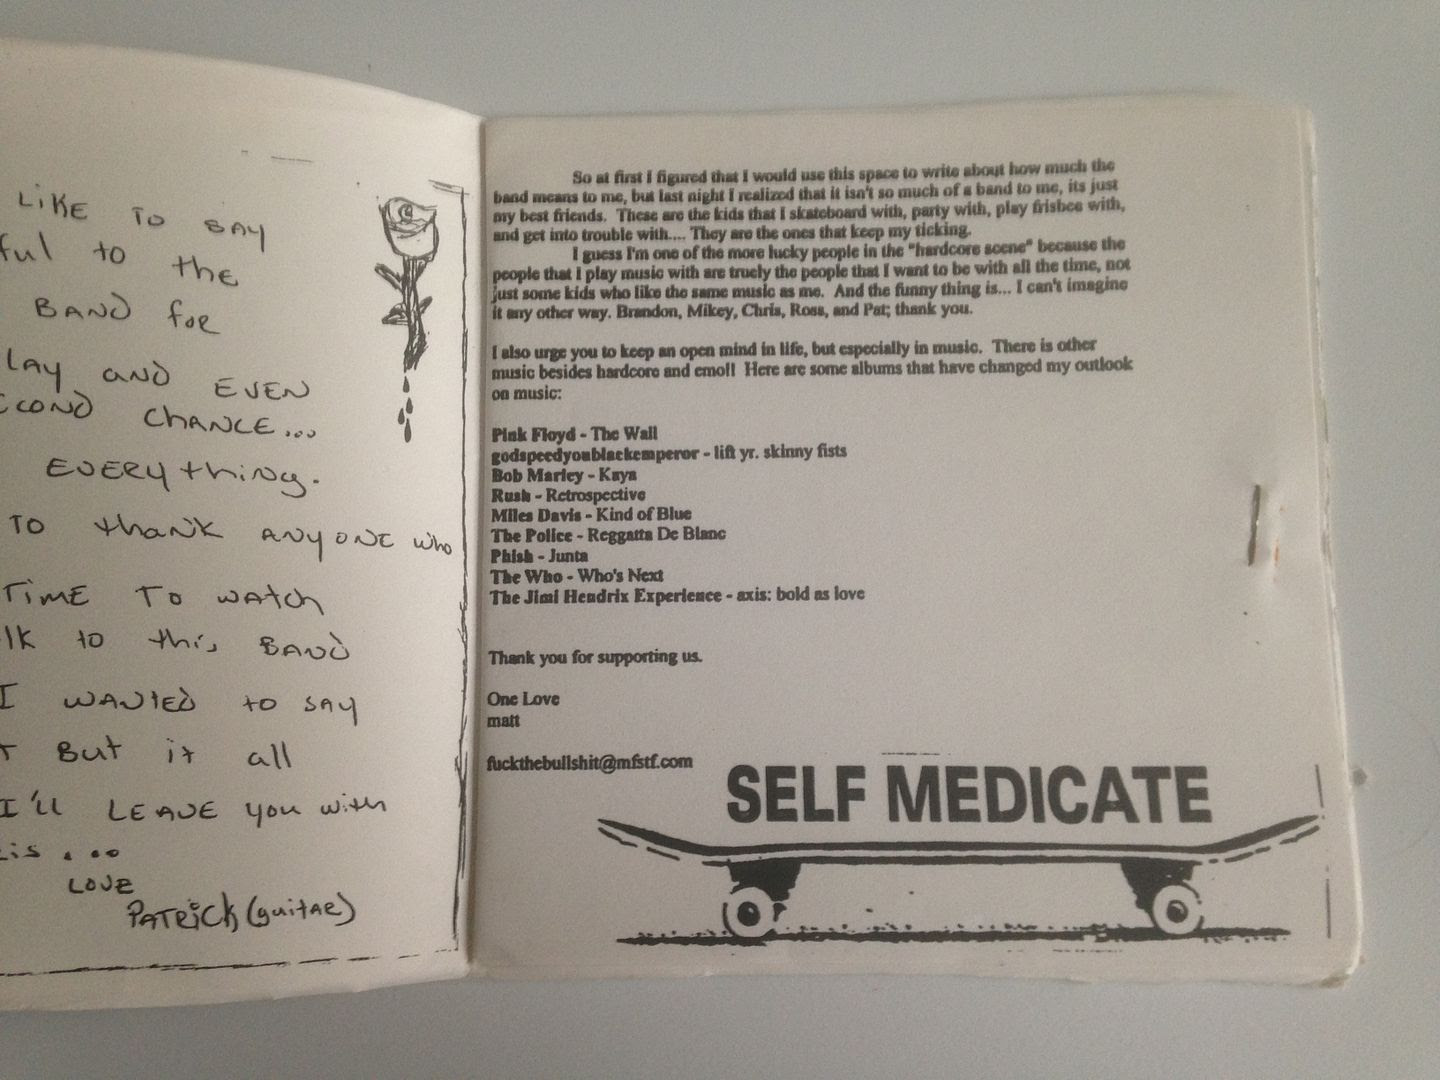 LIKE TO SAY
ful to the
BAND for
LAY and EVEN
COND ChANCE...
EVERYthing.
TO thANK ANYONE who
TIME TO WATCH
lk to this BAND
I WANTED to SAY
T But it all
I'll LEAVE you with
is....
LOVE
PATRiCk (guitAR)
So at first I figured that I would use this space to write about how much the
band means to me, but last night I realized that it isn't so much of a band to me, its just
my best friends. These are the kids that I skateboard with, party with, play frisbee with,
and get into trouble with.... They are the ones that keep my ticking.
I guess I'm one of the more lucky people in the "hardcore scene" because the
people that I play music with are truely the people that I want to be with all the time, not
just some kids who like the same music as me. And the funny thing is... I can't imagine
it any other way. Brandon, Mikey, Chris, Ross, and Pat; thank you.
I also urge you to keep an open mind in life, but especially in music. There is other
music besides hardcore and emo!! Here are some albums that have changed my outlook
on music:
Pink Floyd - The Wall
godspeedyoublackemperor - lift yr. skinny fists
Bob Marley - Kaya
Rush - Retrospective
Miles Davis - Kind of Blue
The Police - Reggatta De Blanc
Phish - Junta
The Who - Who's Next
The Jimi Hendrix Experience - axis: bold as love
Thank you for supporting us.
One Love
matt
fuckthebullshit@mfstf.com
SELF MEDICATE